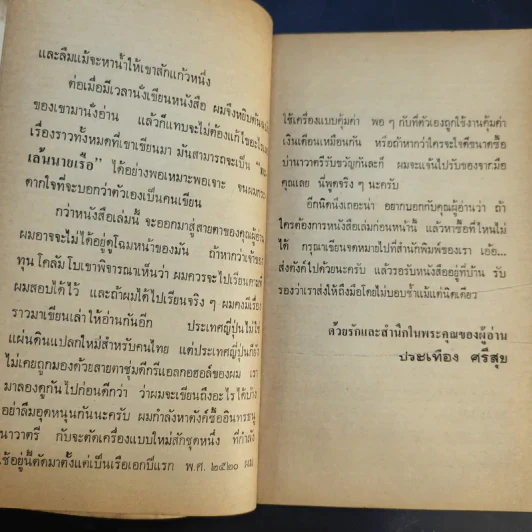 และลืมแม้จะหาน้ำให้เขาสักแก้วหนึ่ง
ต่อเมื่อมีเวลานั่งเขียนหนังสือ ผมจึงหยิบต้นฉบับ
ของเขามานั่งอ่าน แล้วก็แทบจะไม่ต้องแก้ไขอะไร
เรื่องราวทั้งหมดที่เขาเขียนมา มันสามารถจะเป็น
เล้นนายเรือ” ได้อย่างพอเหมาะพอเจาะ จนผม
ดากใจที่จะบอกว่าตัวเองเป็นคนเขียน
กว่าหนังสือเล่มนี้ จะออกมาสู่สายตาของคุณผู้อ่าน
ผมอาจจะไม่ได้อยู่ดูโฉมหน้าของมัน ถ้าหากว่าเจ้าของ
ทุน โคลัมโบเขาพิจารณาเห็นว่า ผมควรจะไปเรียนตามที่
ผมสอบได้ไว้ และถ้าผมได้ไปเรียนจริง ๆ ผมคงมีเรื่อง
ราวมาเขียนเล่าให้อ่านกันอีก ประเทศญี่ปุ่นไม่ใช่
แผ่นดินแปลกใหม่สำหรับคนไทย แต่ประเทศญี่ปุ่นก็ยัง
ไม่เคยถูกมองด้วยสายตาชุ่มดีกรีแอลกอฮอล์ของผม เรา
มาลองดูกันไปก่อนดีกว่า ว่าผมจะเขียนถึงอะไรได้บ้าง
อย่าลืมอุดหนุนกันนะครับ ผมกำลังหาตังค์ซื้ออินทรธนู
นาวาตรี กับจะตัดเครื่องแบบใหม่สักชุดหนึ่ง ที่กำลัง
ใช้อยู่นี้ตัดมาตั้งแต่เป็นเรือเอกปีแรก พ.ศ. ๒๕๒๐ ผม
ใช้เครื่องแบบคุ้มค่า พอ ๆ กับที่ตัวเองถูกใช้งานคุ้มค่า
เงินเดือนเหมือนกัน หรือถ้าหากว่าใครจะใจดีขนาดซื้อ
บ่านาวาตรีรับขวัญกันละก็ ผมจะแจ้นไปรับของจากมือ
คุณเลย นี่พูดจริง ๆ นะครับ
อีกนิดนึงเถอะน่า อยากบอกกับคุณผู้อ่านว่า ถ้า
ใครต้องการหนังสือเล่มก่อนหน้านี้ แล้วหาซื้อที่ไหนไม่
ได้ กรุณาเขียนจดหมายไปที่สำนักพิมพ์ของเรา เอ้อ...
ส่งตังค์ไปด้วยนะครับ แล้วรอรับหนังสืออยู่ที่บ้าน รับ
รองว่าเราส่งให้ถึงมือโดยไม่บอบช้ำแม้แต่นิดเดียว
ด้วยรักและสำนึกในพระคุณของผู้อ่าน
ประเทือง ศรีสุข